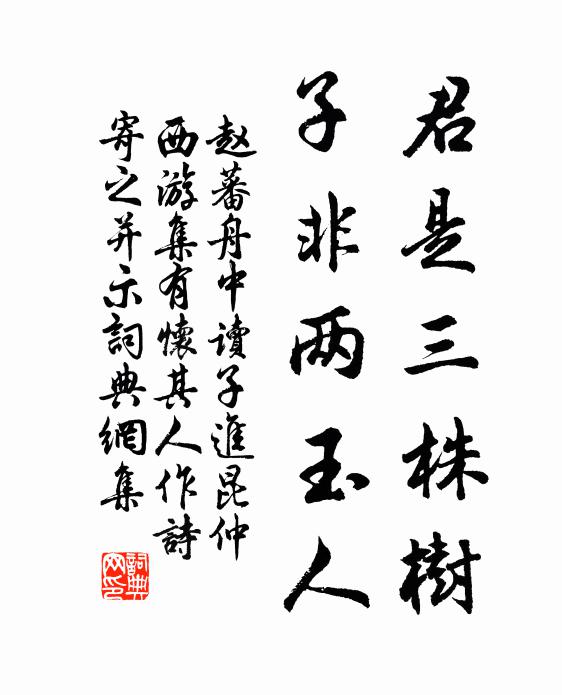 君是三株樹
子非两玉人
赵蕃舟中讀子進昆仲
西游集有懷其人作詩
寄之并示詞典網集
詞典網印